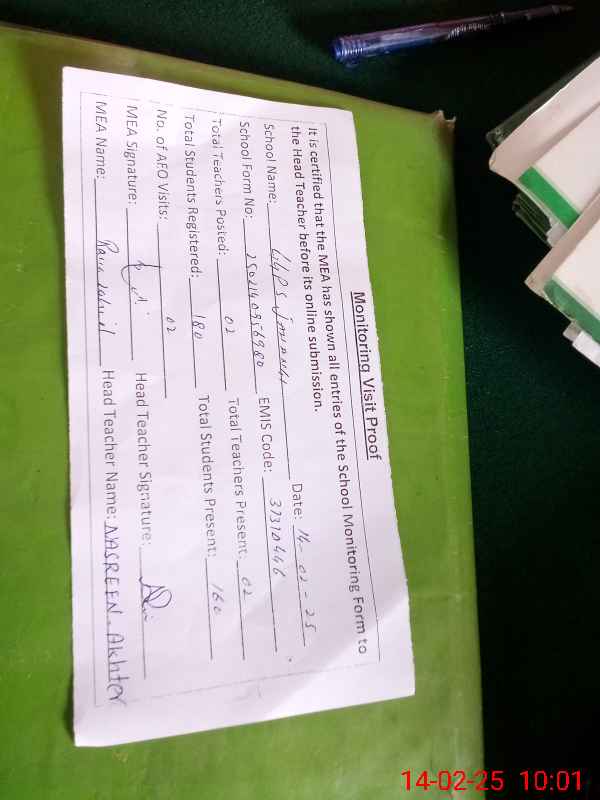 Monitoring Visit Proof
It is certified that the MEA has shown all entries of the School Monitoring Form to
the Head Teacher before its online submission.
School Name: GGPS Date: 14-02-25
School Form No: 2502140956980 EMIS Code: 37310446
Total Teachers Posted: 02 Total Teachers Present: 02
Total Students Registered: 180 Total Students Present: 160
No. of AEO Visits: 02
MEA Signature: Head Teacher Signature:
MEA Name: Head Teacher Name: NASREEN. Akhter
14-02-25 10:01